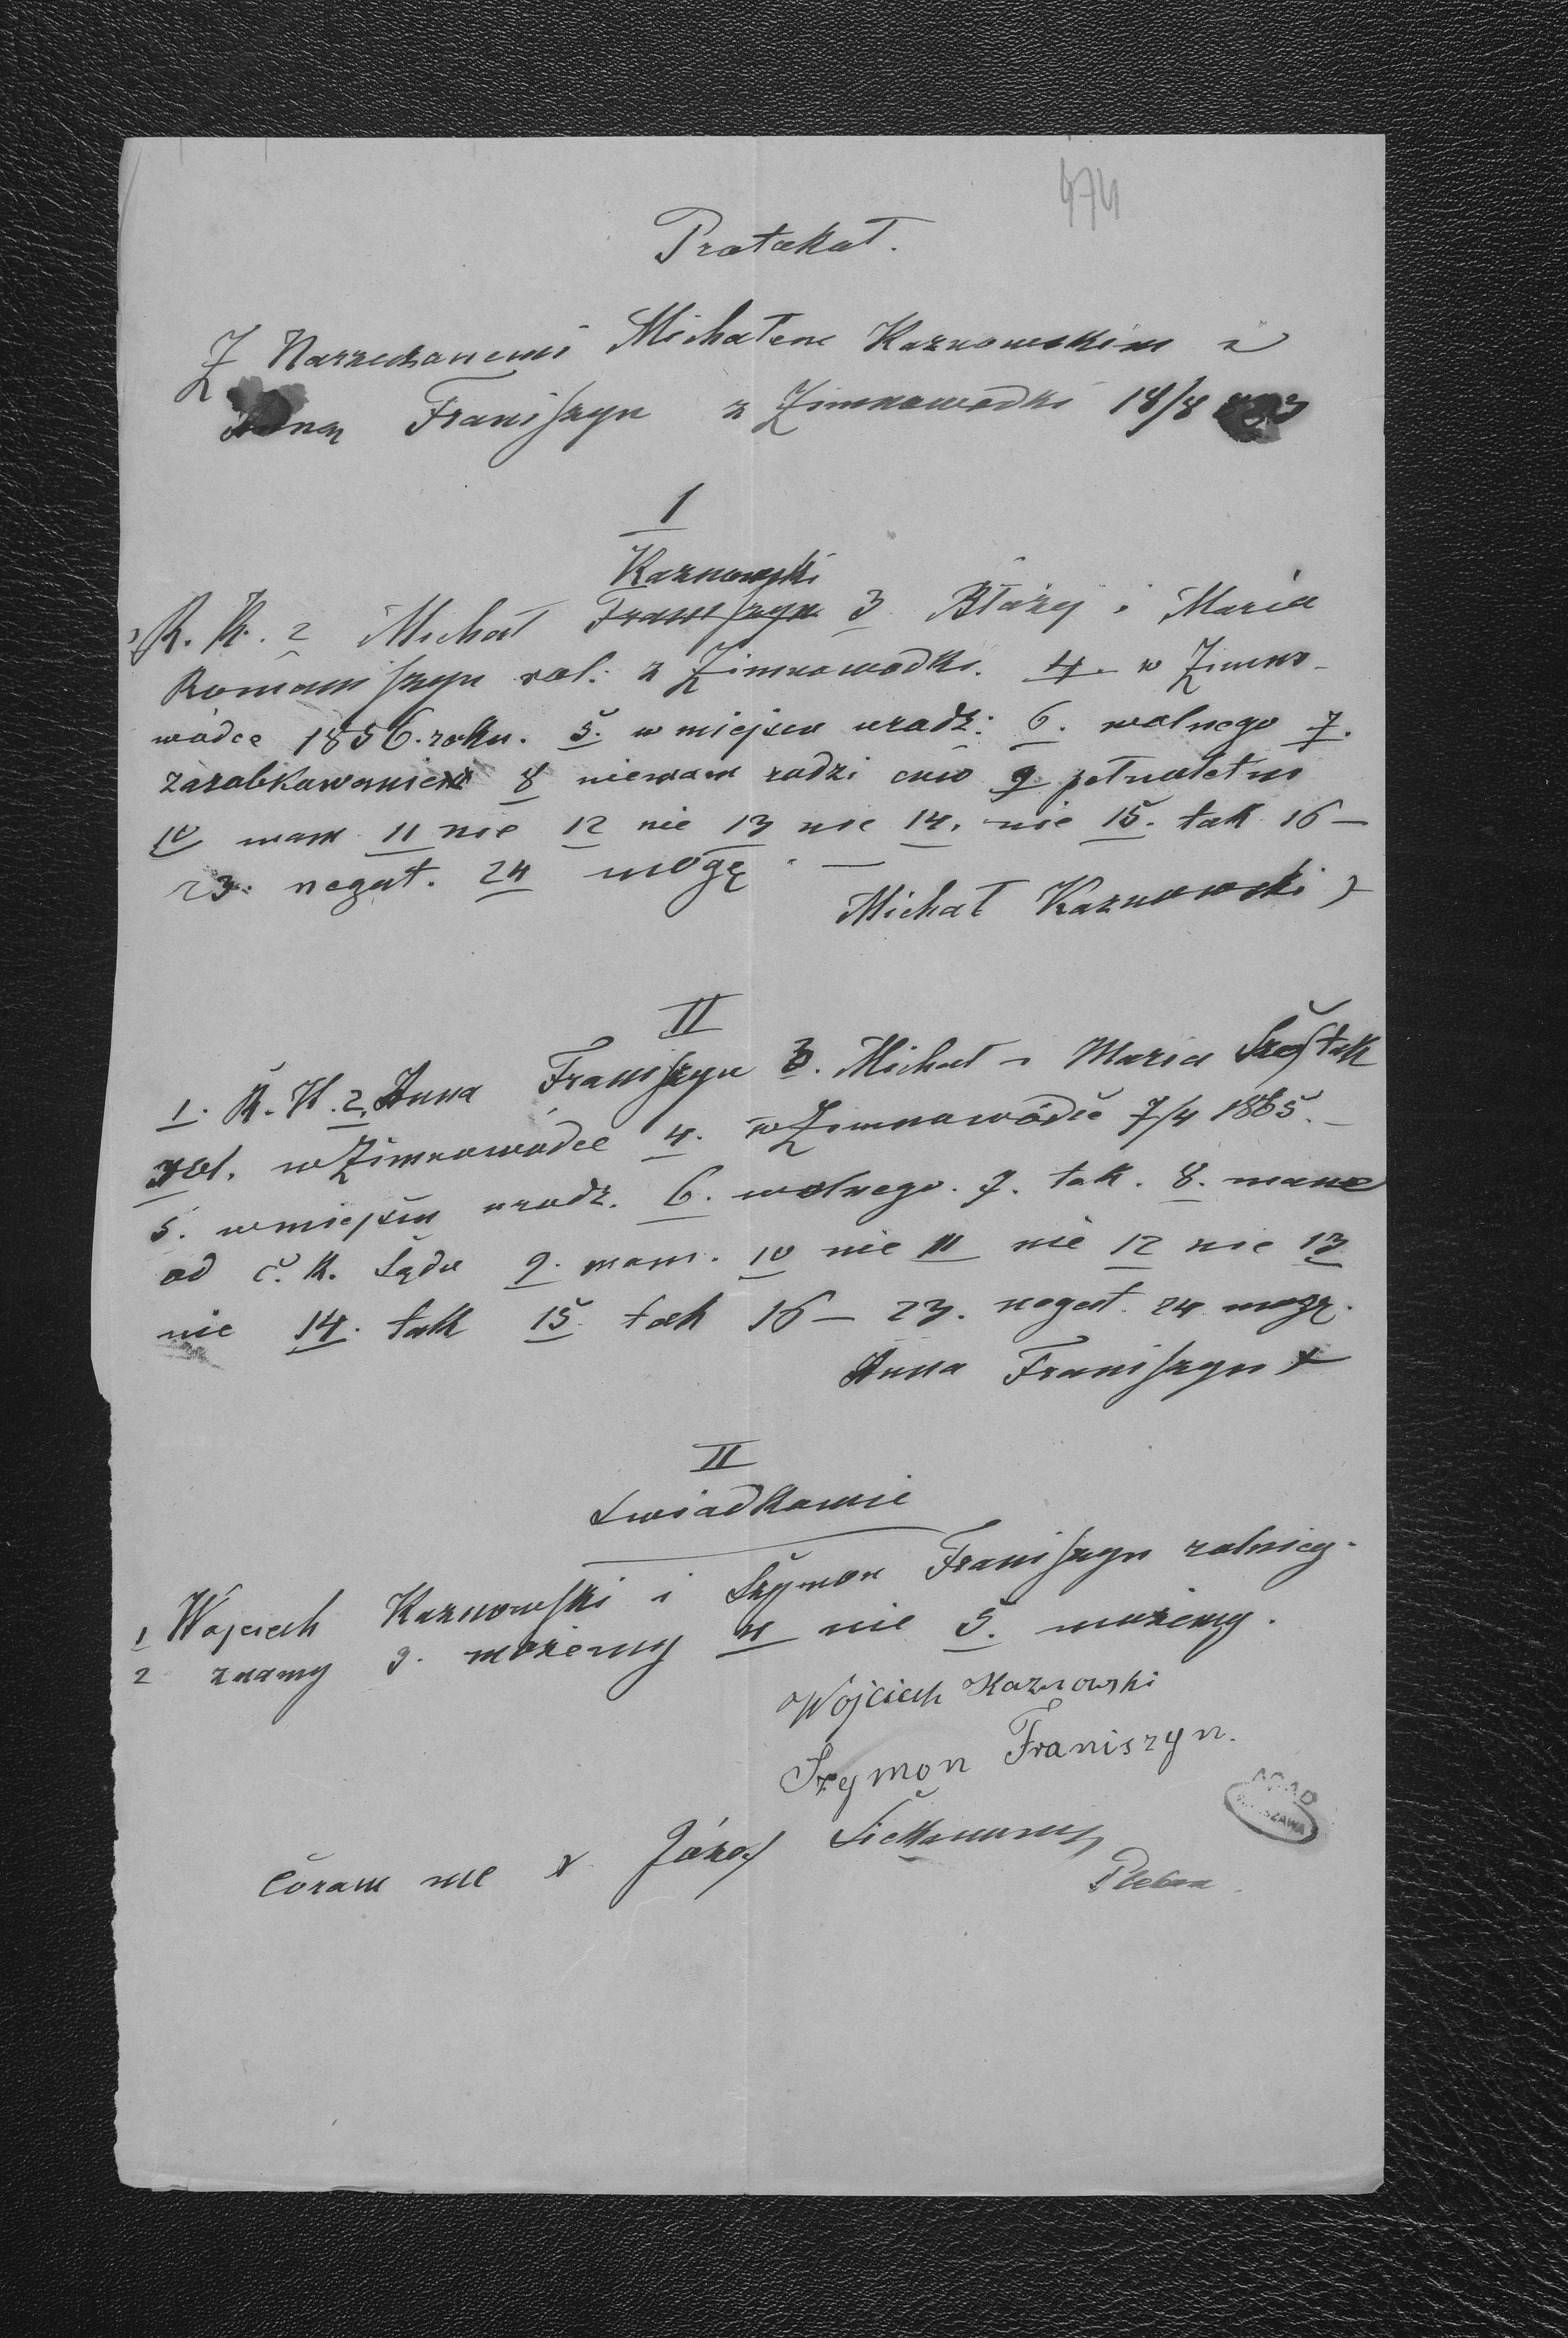 474
Protokoł.
Z Narzeczonemi Michałem Kaznowskim i
Anną Franiszyn z Zimnowodki 18/8
I
Kaznowski
1 R. K. 2 Michał Franiszyn 3 Błażej i Maria
Romaniszyn rol. z Zimnowodki. 4. w Zimno-
wódce 1856. roku. 5. w miejscu urodz: 6. wolnego 7.
zarobkowaniem 8 niemam rodzi ców 9 pełnoletni
10 mam 11 nie 12 nie 13 nie 14. nie 15. tak 16 —
23. negat. 24 mogę. —
Michał Kaznowski
II
1. R. K. 2. Anna Franiszyn 3. Michał i Maria Szostak
rol. w Zimnowódce 4. w Zimnowódce 7/4 1865. –
5. w miejscu urodz. 6. wolnego. 7. tak. 8. mam
od c. k. Sądu 9. mam. 10 nie 11 nie 12 nie 13
nie 14. tak 15. tak 16 — 23. negat. 24 mogę.
Anna Franiszyn +
II
Swiadkowie
1 Wojciech Kaznowski i Szymon Franiszyn rolnicy.
2 znamy 3. możemy 4 nie 5. możemy.
Wojciech Kaznowski
Szymon Franiszyn.
AGAD
WARSZAWA
Coram me X. Józef
Pleban